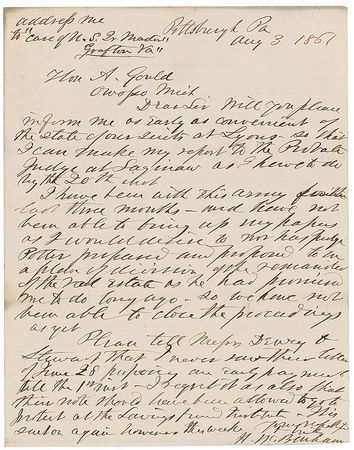 address me
to "Care of U. S. Qr Master"
Grafton Va"
Pittsburgh Pa
Aug 3 1861
Hon A. Gould
Owosso Mich
Dear Sir Will you please
inform me as early as convenient of
the state of our suits at Lyons - so that
I can make my report to the Probate
Judge at Saginaw as I have to do
by the 20th inst
I have been with this army
last three months - and have not
been able to bring up my papers
as I would desire to nor has Judge
Potter prepared and proposed to me
a plan of division of the remainder
of the real estate as he had promised
me to do long ago - so we have not
been able to close the proceedings
as yet
Please tell Messrs Dewey &
Stewart that I never saw their letter
of June 28 proposing an early payment
till the 1st inst - I regret it as also that
their note should have been allowed to go to
protest at the Savings fund Institute - this
again however this week
Yours respy
H. W. Benham